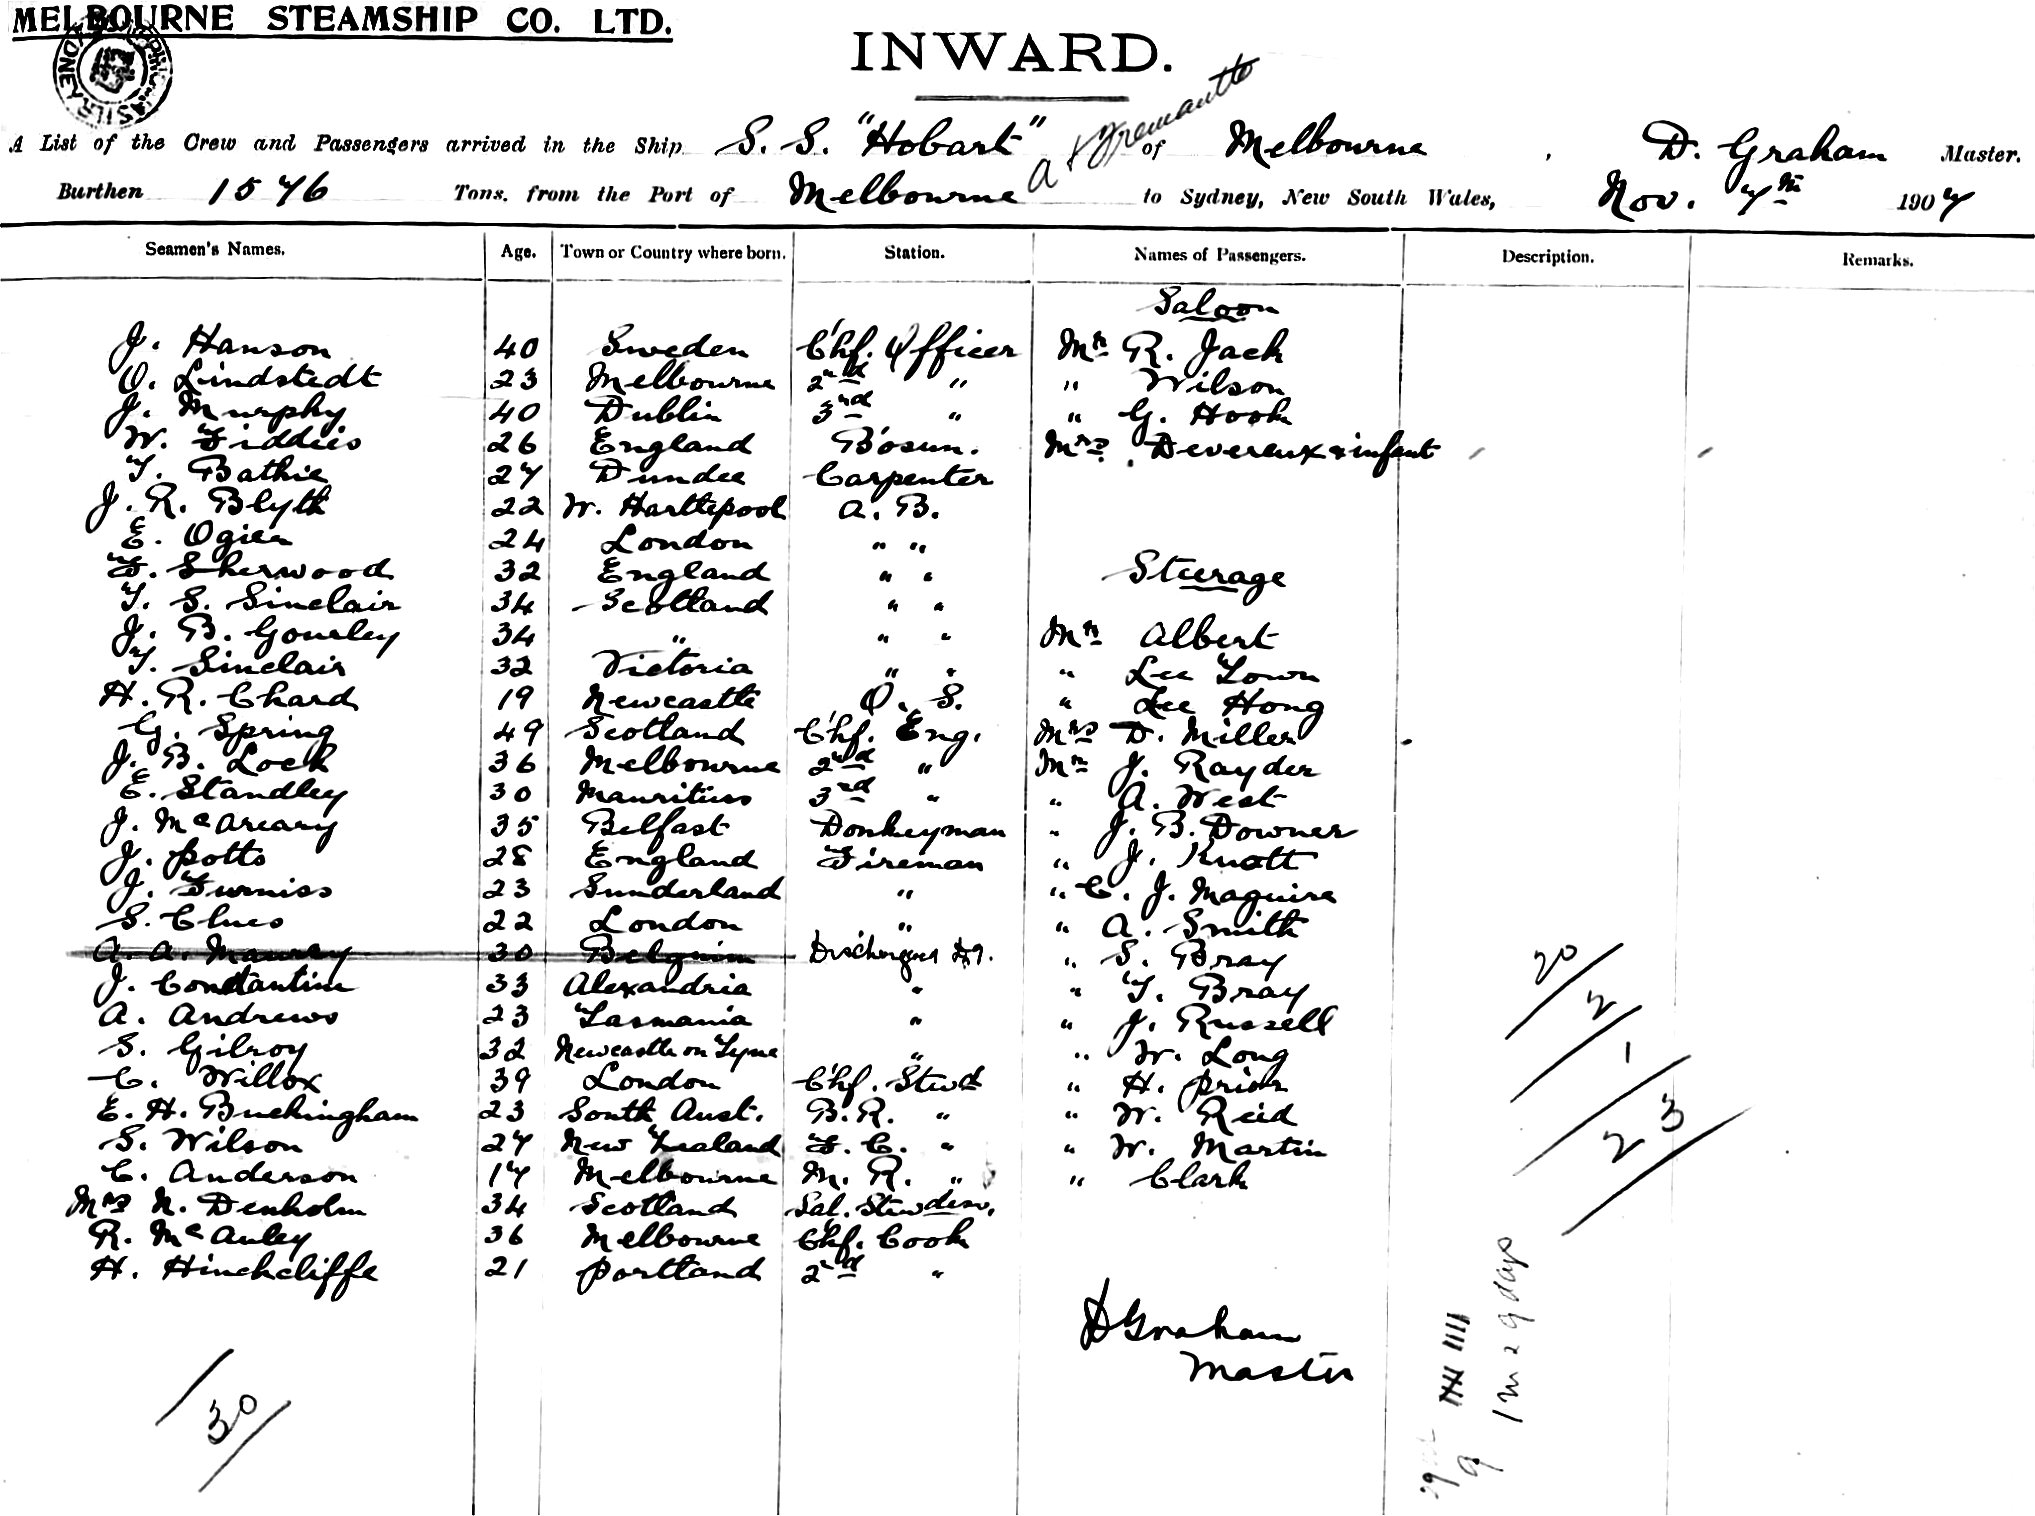 MELBOURNE STEAMSHIP CO. LTD.
INWARD.
A List of the Crew and Passengers arrived in the Ship S. S. "Hobart" of Melbourne, D. Graham Master.
& Fremantle
Burthen 1576 Tons. from the Port of Melbourne to Sydney, New South Wales, Nov. 7th 1907
Seamen's Names. Age. Town or Country where born. Station. Names of Passengers. Description. Remarks.
Saloon
J. Hanson 40 Sweden Chf. Officer Mr R. Jack
O. Lindstedt 23 Melbourne 2nd " " Wilson
J. Murphy 40 Dublin 3rd " " G. Hook
W. Fiddies 26 England Bosun. Mrs. Devereux & infant
T. Bathie 27 Dundee Carpenter
J. R. Blyth 22 W. Hartlepool A. B.
E. Ogier 24 London " "
F. Sherwood 32 England " " Steerage
T. S. Sinclair 34 Scotland " "
J. B. Gourley 34 " " " Mr Albert
T. Sinclair 32 Victoria " " " Lee Town
H. R. Chard 19 Newcastle O. S. " Lee Hong
G. Spring 49 Scotland Chf. Eng. Mrs D. Miller
J. B. Lock 36 Melbourne 2nd " Mr J. Rayder
E. Standley 30 Mauritius 3rd " " A. West
J. McAreary 35 Belfast Donkeyman " J. B. Downer
J. Potts 28 England Fireman " J. Knott
J. Furniss 23 Sunderland " " C. J. Maguire
S. Clues 22 London " " A. Smith
A. A. 30 Belguim Discharged " S. Bray
J. Constantine 33 Alexandria " " T. Bray
A. Andrews 23 Tasmania " " J. Russell
S. Gilroy 32 Newcastle on Tyne " " W. Long
C. Willox 39 London Chf. Stwd " H. Prior
E. H. Buckingham 23 South Aust. B. R. " " W. Reid
S. Wilson 27 New Zealand F. C. " " W. Martin
C. Anderson 17 Melbourne M. R. " " Clark
Mrs N. Denholm 34 Scotland Sal. Stwdess.
R. McAuley 36 Melbourne Chf. Cook
H. Hinchcliffe 21 Portland 2nd "
20
2
1
23
D Graham
Master
30
9
1 m 29 days